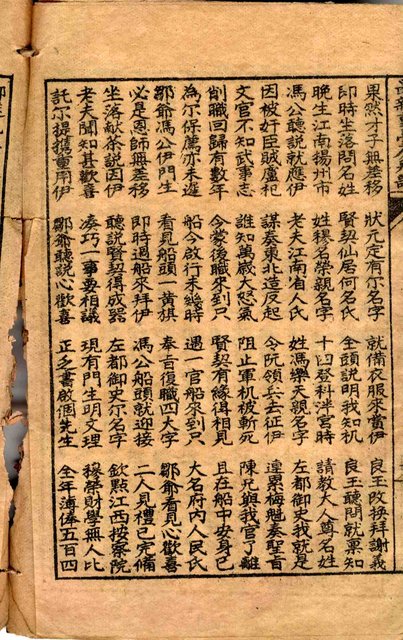 果然才子無差移 狀元定有尔名字 就備衣服來賞伊 良玉改換拜謝義
即時坐落問名姓 賢契仙居何名氏 全頭說明我知机 良玉聽問就稟知
晚生江南揚州市 姓穆名榮親名字 十四登科洋宮時 請教大人尊名姓
馮公聽說就應伊 老夫江南省人氏 姓馮樂天親名字 左都御史我就是
因被奸臣賊盧杞 謀奏東北造反起 令阮領兵去征伊 連累梅魁奏聖旨
文官不知武事志 誰知萬歲大怒氣 阻止軍机被斬死 陳兄與我官了離
削職回歸有數年 今蒙復職來到只 賢契有緣得相見 且在船中安身已
為尔保薦亦未遲 船今啟行未幾時 遇一官船來到只 大名府內人民氏
鄒爺馮公伊門生 看見船頭一黃旗 奉旨復職四大字 鄒爺看見心歡喜
必是恩師無差移 即時過船來拜伊 馮公船頭就迎接 二人見禮已完備
坐落献茶說因伊 聽說賢契得成器 左都御史尔名字 欽點江西按察院
老夫聞知甚歡喜 湊巧一事要相議 現有門生明文理 穆榮財學無人比
託尔提携重用伊 鄒爺聽說心歡喜 正乏書啟個先生 全年薄俸五百四